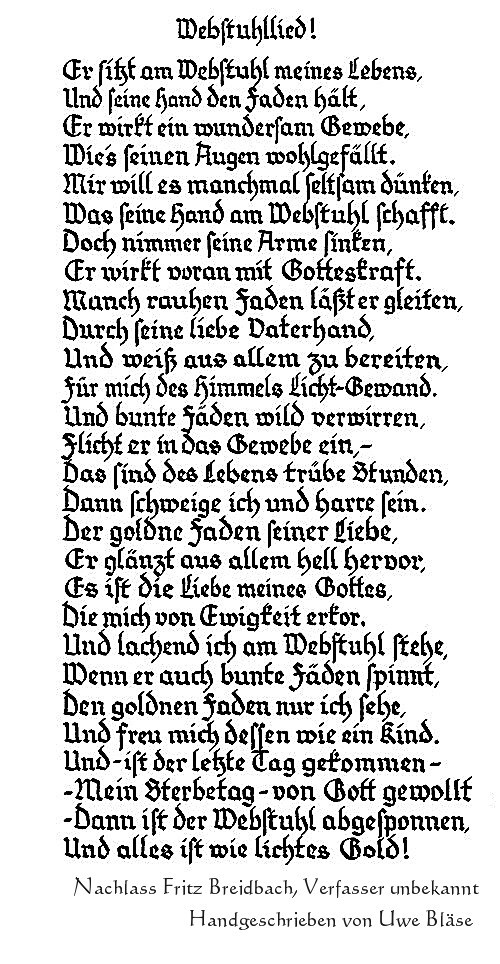 Webstuhllied!
Er sitzt am Webstuhl meines Lebens,
Und seine Hand den Faden hält,
Er wirkt ein wundersam Gewebe,
Wie's seinen Augen wohlgefällt.
Mir will es manchmal seltsam dünken,
Was seine Hand am Webstuhl schafft.
Doch nimmer seine Arme sinken,
Er wirkt voran mit Gotteskraft.
Manch rauhen Faden läßt er gleiten,
Durch seine liebe Vaterhand,
Und weiß aus allem zu bereiten,
Für mich des Himmels Licht-Gewand.
Und bunte Fäden wild verwirren,
Flicht er in das Gewebe ein,-
Das sind des Lebens trübe Stunden,
Dann schweige ich und harre sein.
Der goldne Faden seiner Liebe,
Er glänzt aus allem hell hervor,
Es ist die Liebe meines Gottes,
Die mich von Ewigkeit erkor.
Und lachend ich am Webstuhl stehe,
Wenn er auch bunte Fäden spinnt,
Den goldnen Faden nur ich sehe,
Und freu mich dessen wie ein Kind.
Und-ist der letzte Tag gekommen-
-Mein Sterbetag-von Gott gewollt
-Dann ist der Webstuhl abgesponnen,
Und alles ist wie lichtes Gold!
Nachlass Fritz Breidbach, Verfasser unbekannt
Handgeschrieben von Uwe Bläse